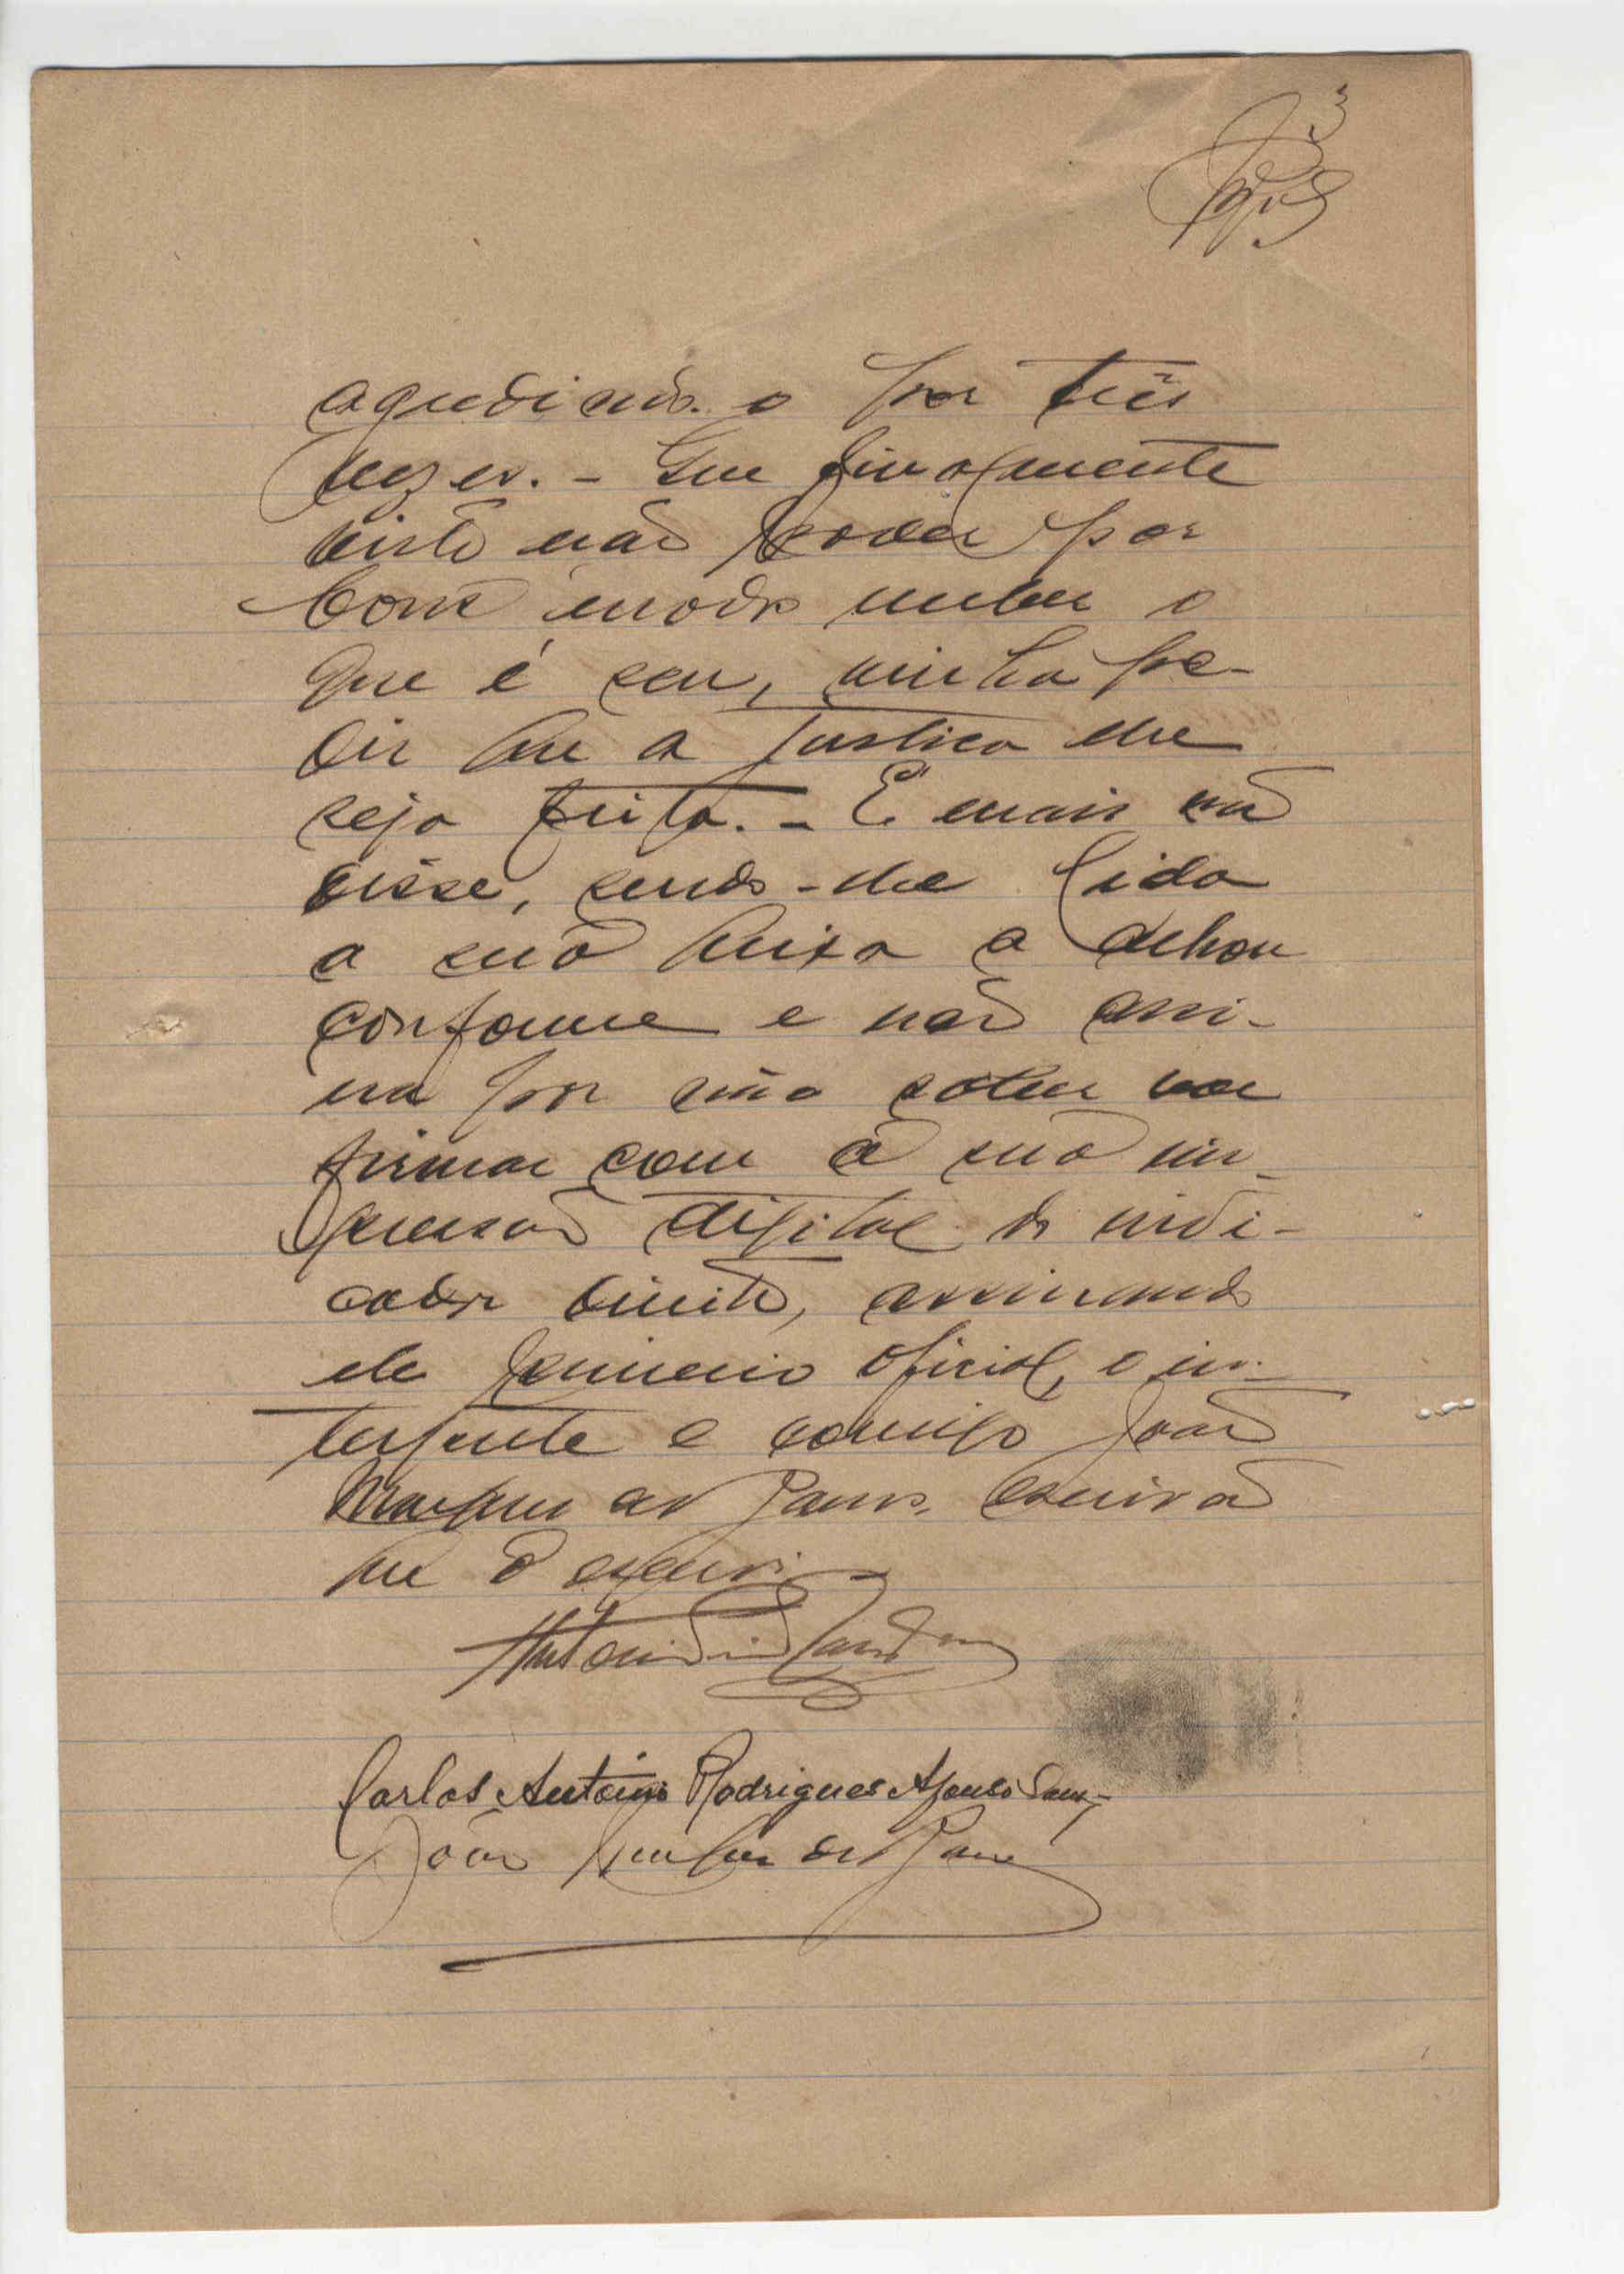 3
agredindo-o por três
vezes. - Que finalmente
visto não poder por
bons modos receber o
que é seu, vinha pe-
dir que a justiça lhe
seja feita. - E mais não
disse, sendo-lhe lida
a sua queixa a achou
conforme e não assi-
na por não saber vae
firmar com a sua im-
pressão digital do indi-
cador direito, assinando
ele primeiro oficial, o in-
terprete e comigo João
Marques de escrivão
que o escrevi
Carlos Antonio Rodrigues Afonso
João de